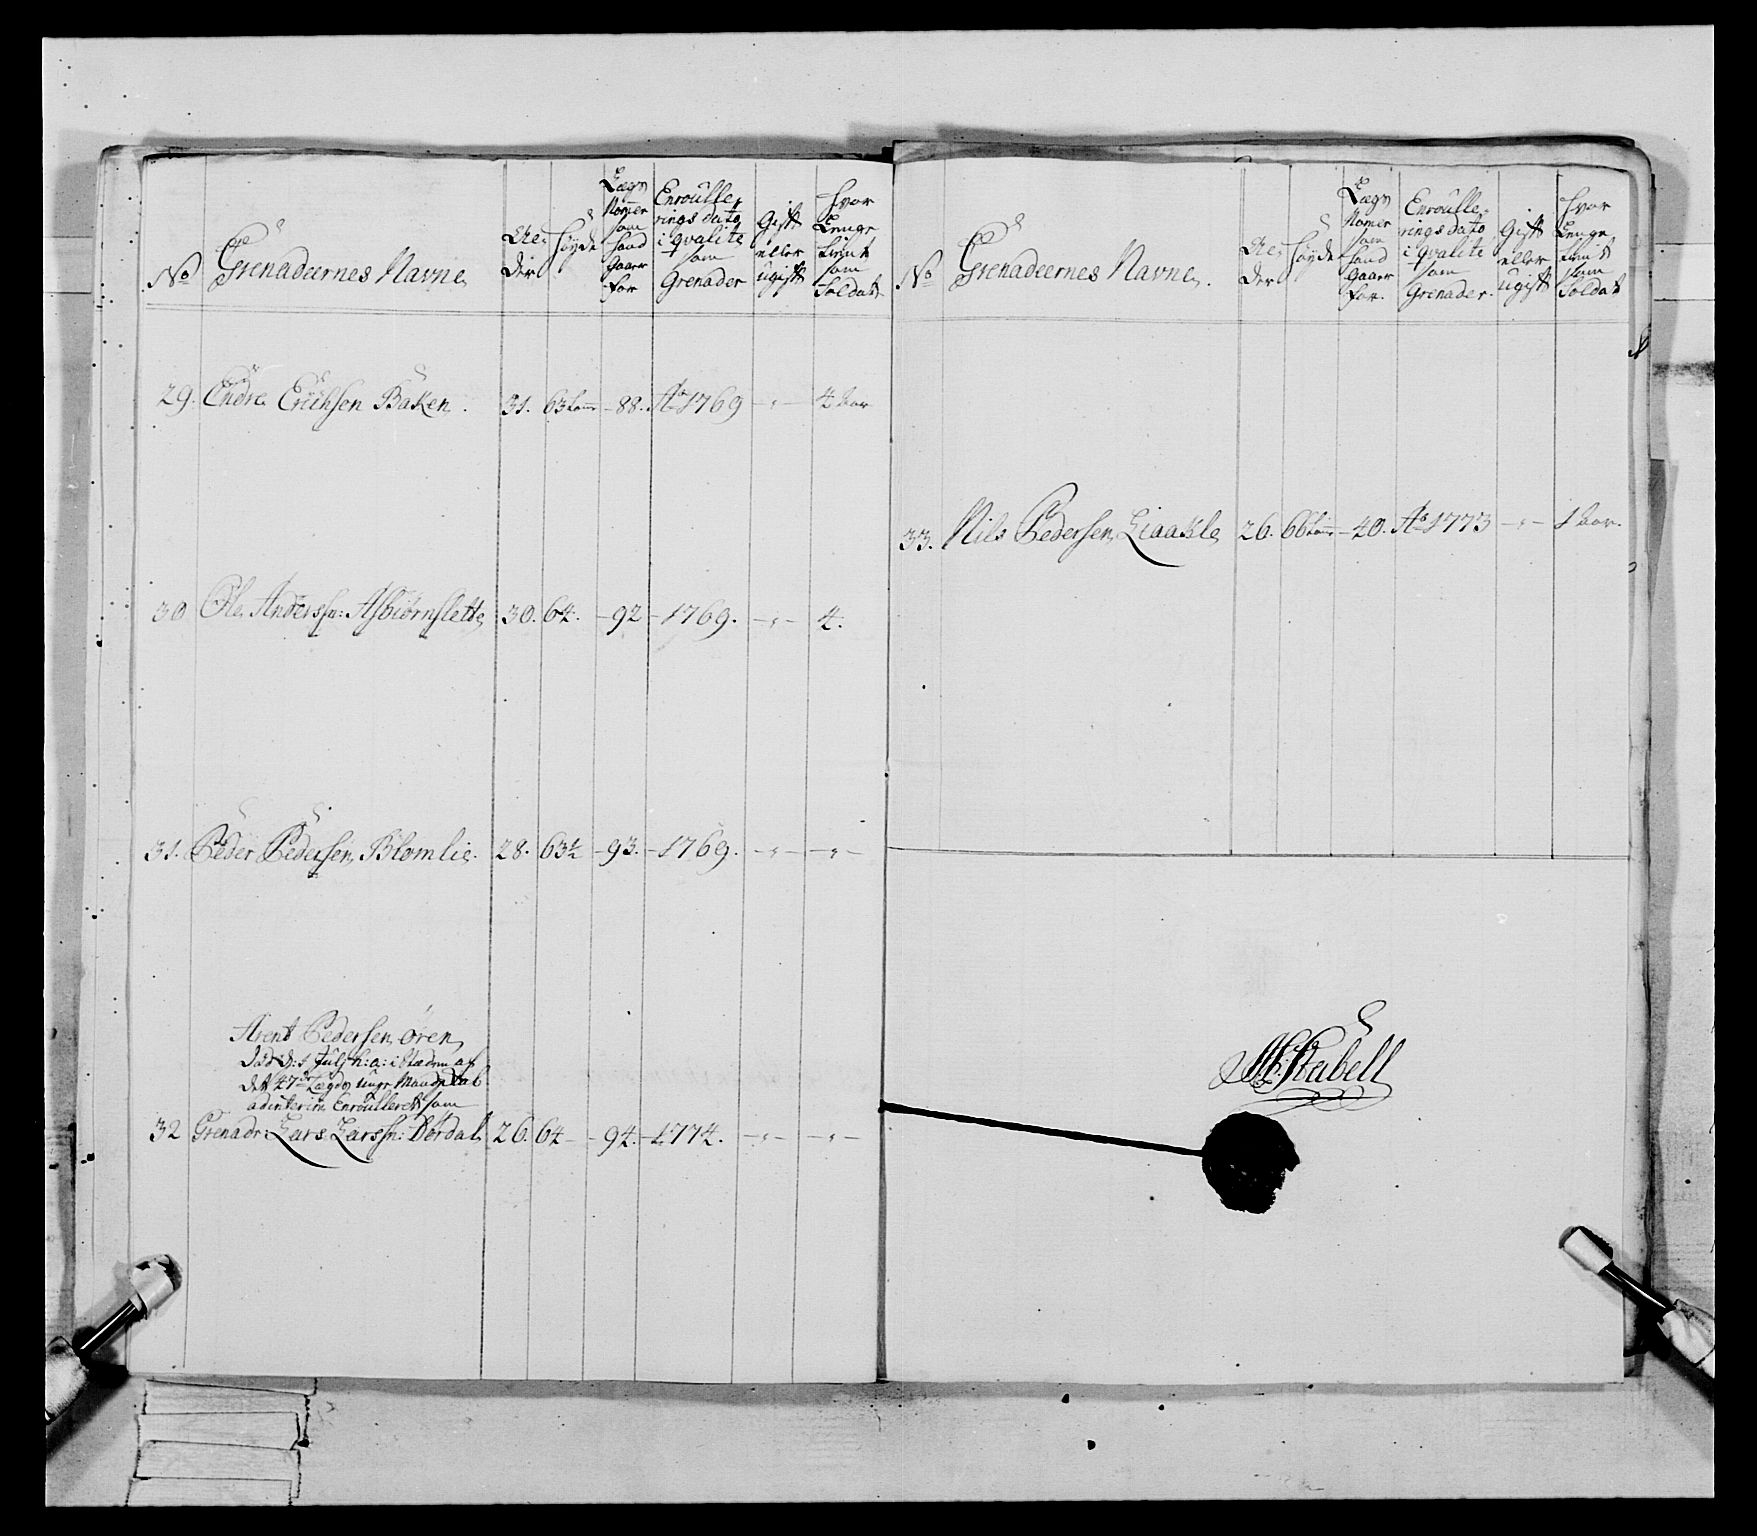 No
Grenadeernes Navne
Al-
der
Høyde
Lægs
Nomer
som
hand
gaaer
for
Enroulle-
rings dato
i qvalite
som
Grenader
Gift
eller
ugift
Hvor
Lenge
tient
som
Soldat
29. Endre Erichsen Baken. 31. 63 tomr - 88. Ao 1769 - " - 4 Aar
30 Ole Anderssn: Asbiørnslette 30. 64. - 92 - 1769. - " - 4.
31. Peder Pedersen Blomlie. 28. 63½ - 93. - 1769. - " - - " -
Arent Pedersen Øren
d: 1 July h: a: i Stæden af
det 47de Lægds unge Mand
adinterim Enroulleret som
32 Grenadr: Lars Larssn: Dørdal 26. 64 - - 94. - 1774. - " - - " -
No
Grenadeernes Navne.
Al-
der
Høyde
Lægs
Nomer
som
hand
gaaer
for.
Enroulle-
rings dato
i qvalite
som
Grenader.
Gift
eller
ugift
Hvor
Lenge
tient
som
Soldat
33. Nils Pedersen Liaakle 26. 66 tomr - 40. Ao 1773 - " - 1 Aar.
Stabell